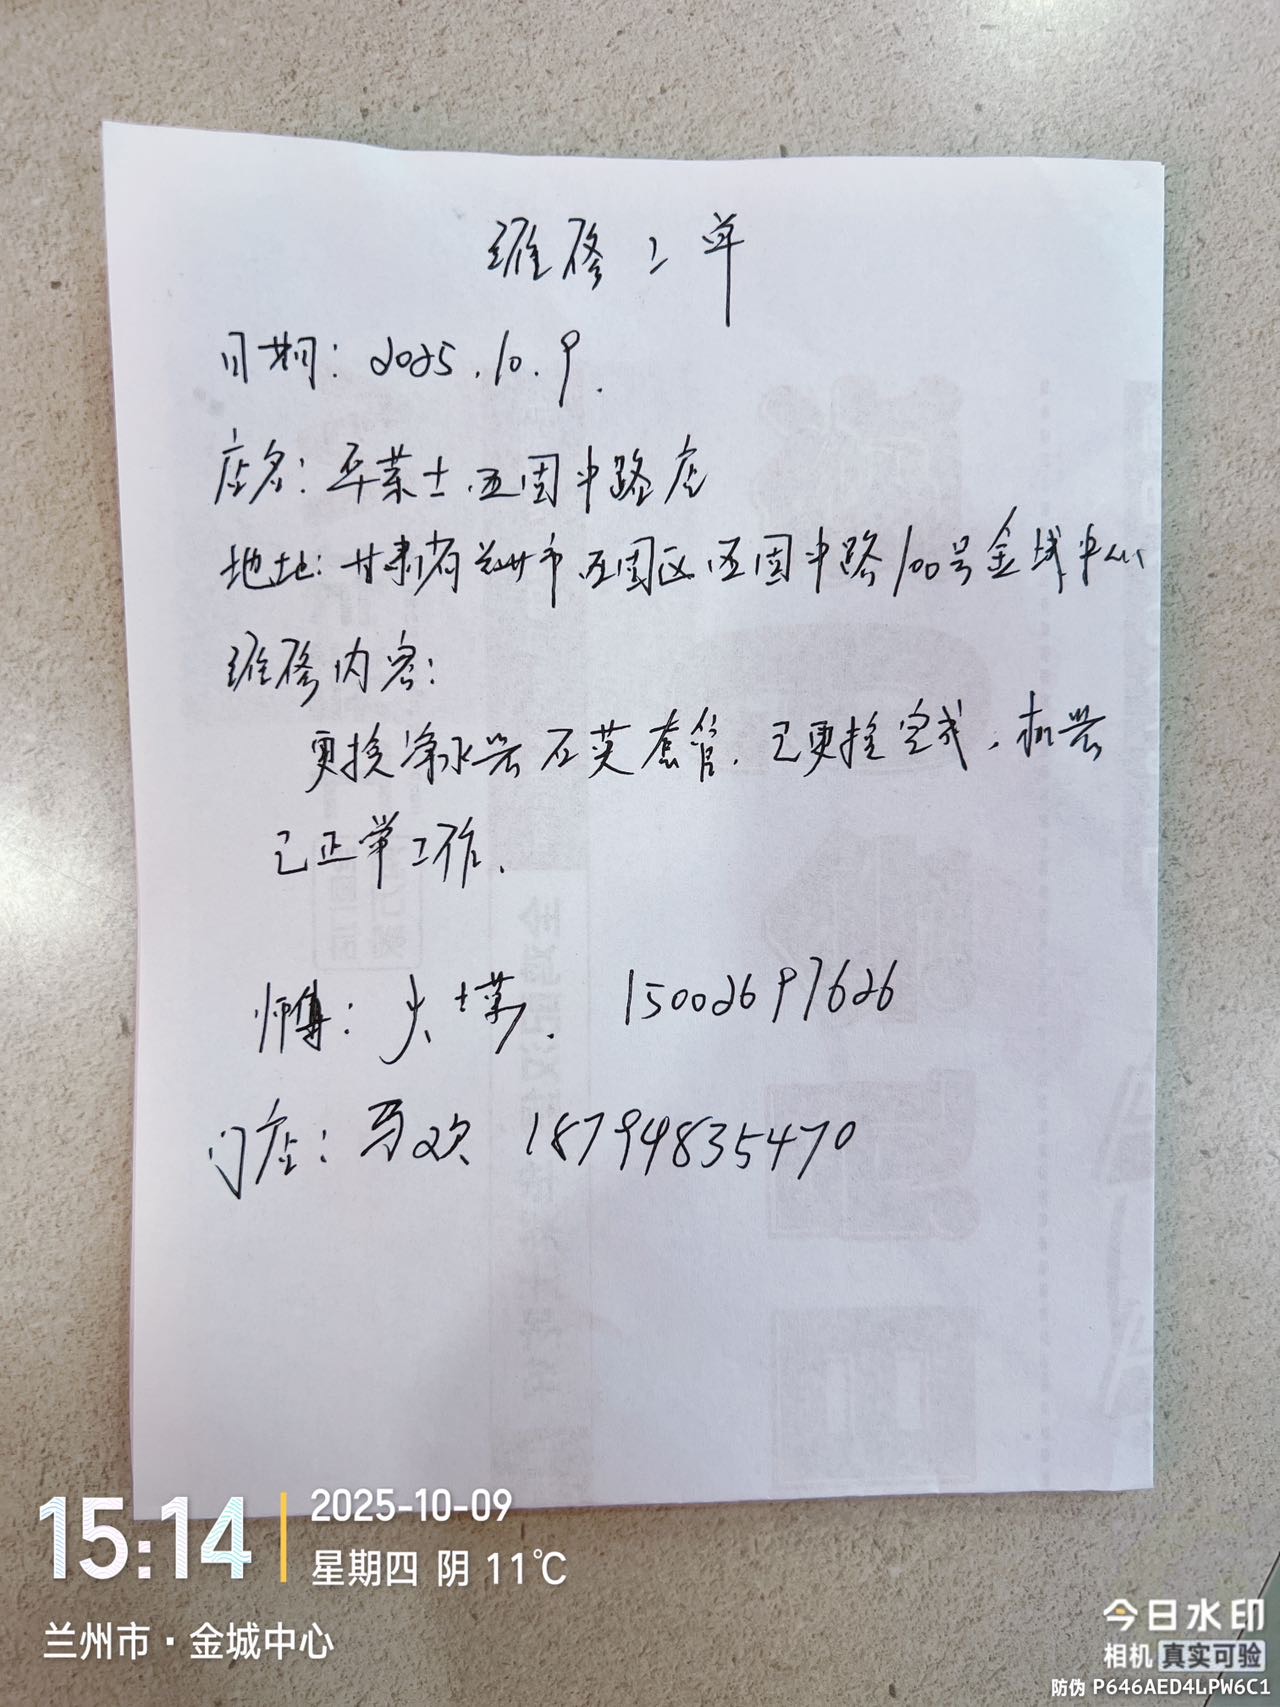 维修工单
日期：2025.10.9.
店名：华莱士西固中路店
地址：甘肃省兰州市西固区西固中路100号金城中心
维修内容：
更换净水器石英套管，已更换完成，机器
已正常工作.
师傅： 15002697626
门店：马欢 18794835470
15:14
2025-10-09
星期四 阴 11℃
兰州市·金城中心
今日水印
相机 真实可验
防伪 P646AED4LPW6C1